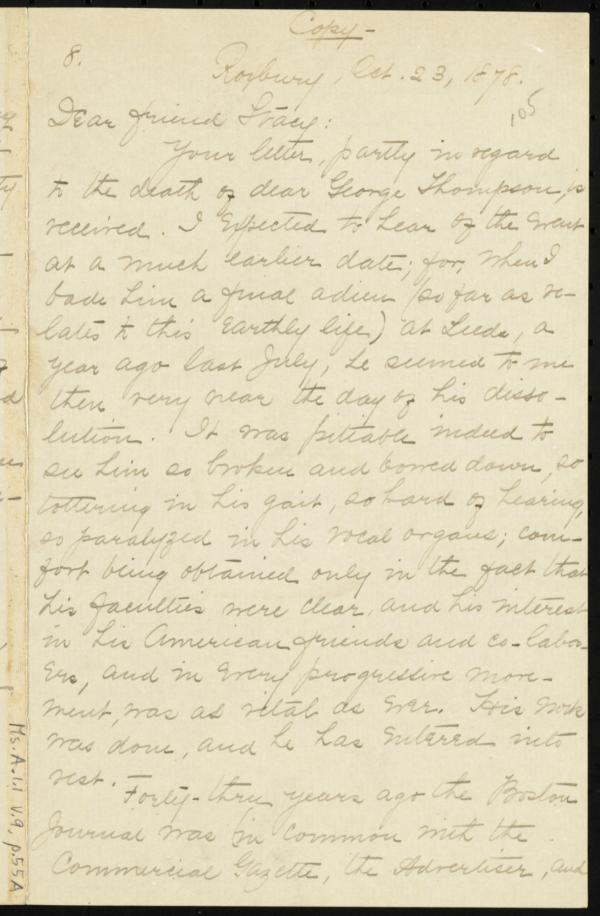 Copy-
8.
Roxbury, Oct. 23, 1878.
105
Dear friend Stacy:
Your letter, partly in regard
to the death of dear George Thompson, is
received. I expected to hear of the event
at a much earlier date; for, when I
bade him a final adieu (so far as re-
lates to this earthly life) at Leeds, a
year ago last July, he seemed to me
then very near the day of his disso-
lution. It was pitiable indeed to
see him so broken and bowed down, so
tottering in his gait, so hard of hearing,
so paralyzed in his vocal organs; com-
fort being obtained only in the fact that
his faculties were clear, and his interest
in his American friends and co-labor-
ers, and in every progressive move-
ment, was as vital as ever. His work
was done, and he has entered into
rest.
Forty-three years ago the Boston
Journal was (in common with the
Commercial Gazette, the Advertiser, and
Ms.A.1.1 v.9, p.55A